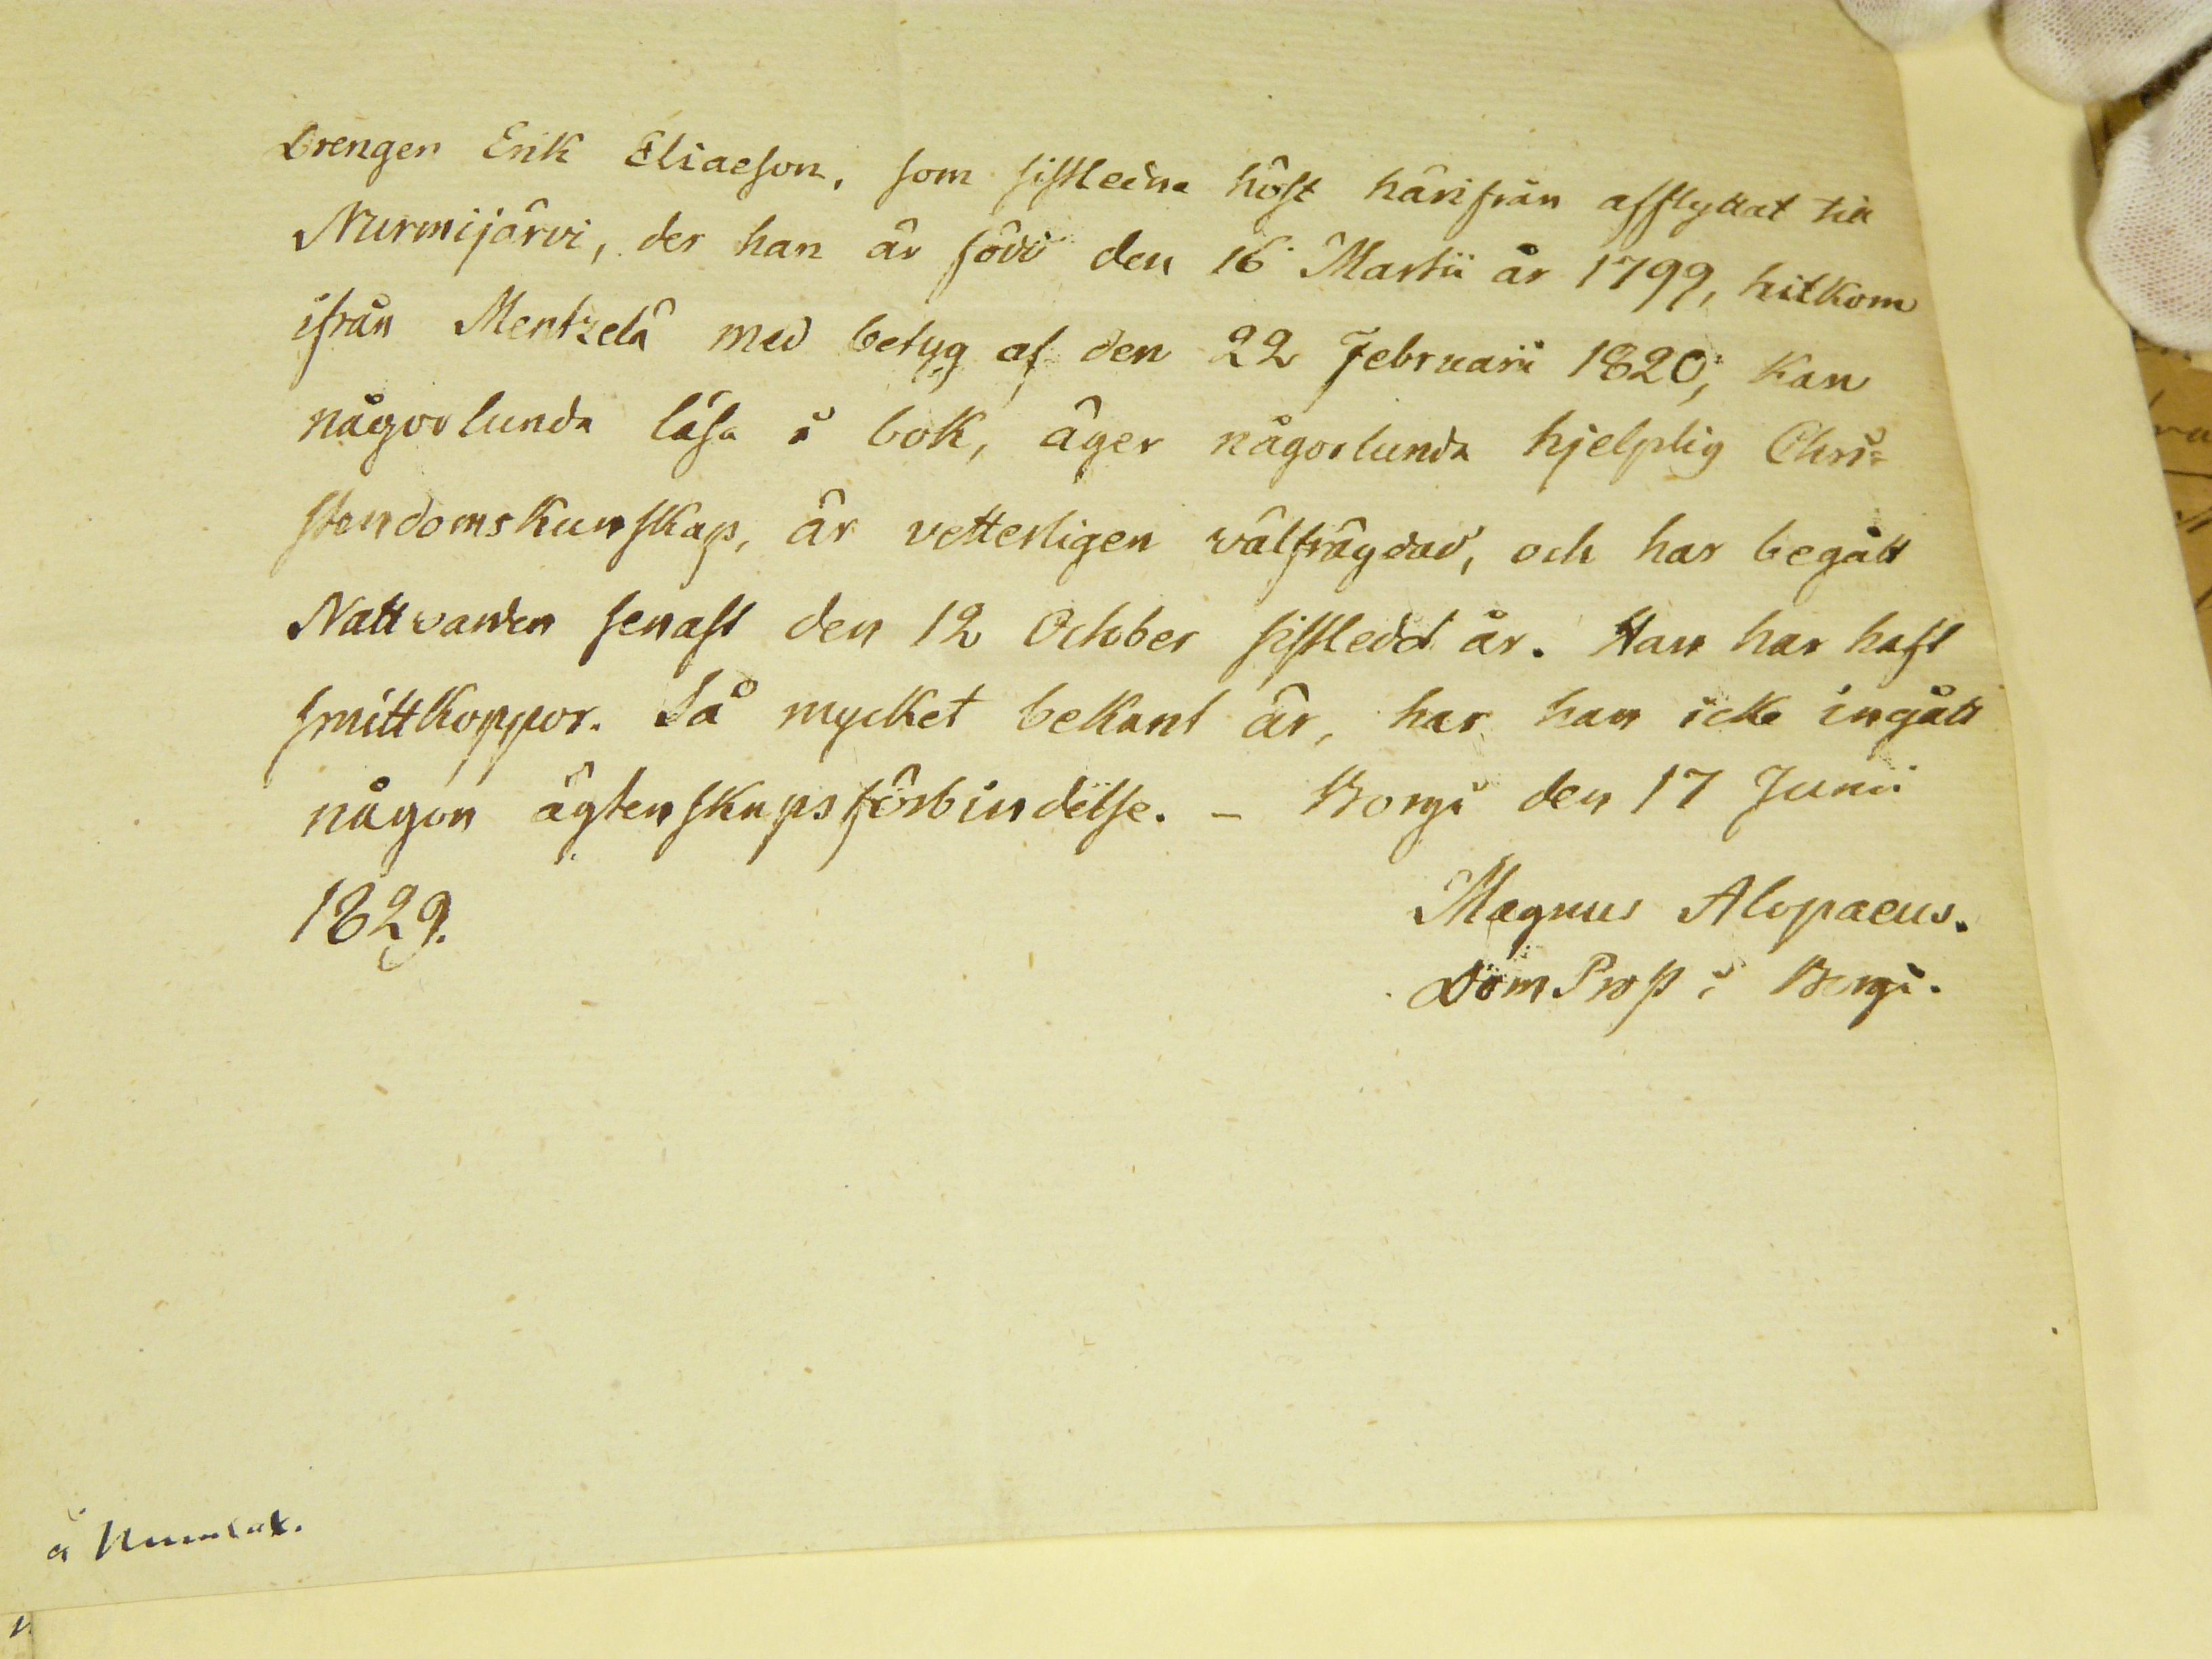 Drengen Erik Eliaeson, som sistledne höst härifrån afflyttat till
Nurmijärvi, der han är född den 16 Martii år 1799, hitkom
ifrån Mentzelä med betyg af den 22 Februarii 1820; kan
någorlunda läsa i bok, äger någorlunda hjelplig Chri-
stendomskunskap, är vetterligen välfrägdad, och har begått
Nattvarden senast den 12 October sistledd år. Han har haft
smittkoppor. Så mycket bekant är, har han icke ingått
någon ägtenskapsförbindelse. – Borgå den 17 Junii
1829.
Magnus Alopaeus.
DomProst i Borgå.
å Numlax.